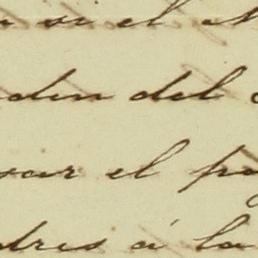 si el
den del
sar el
dres á la